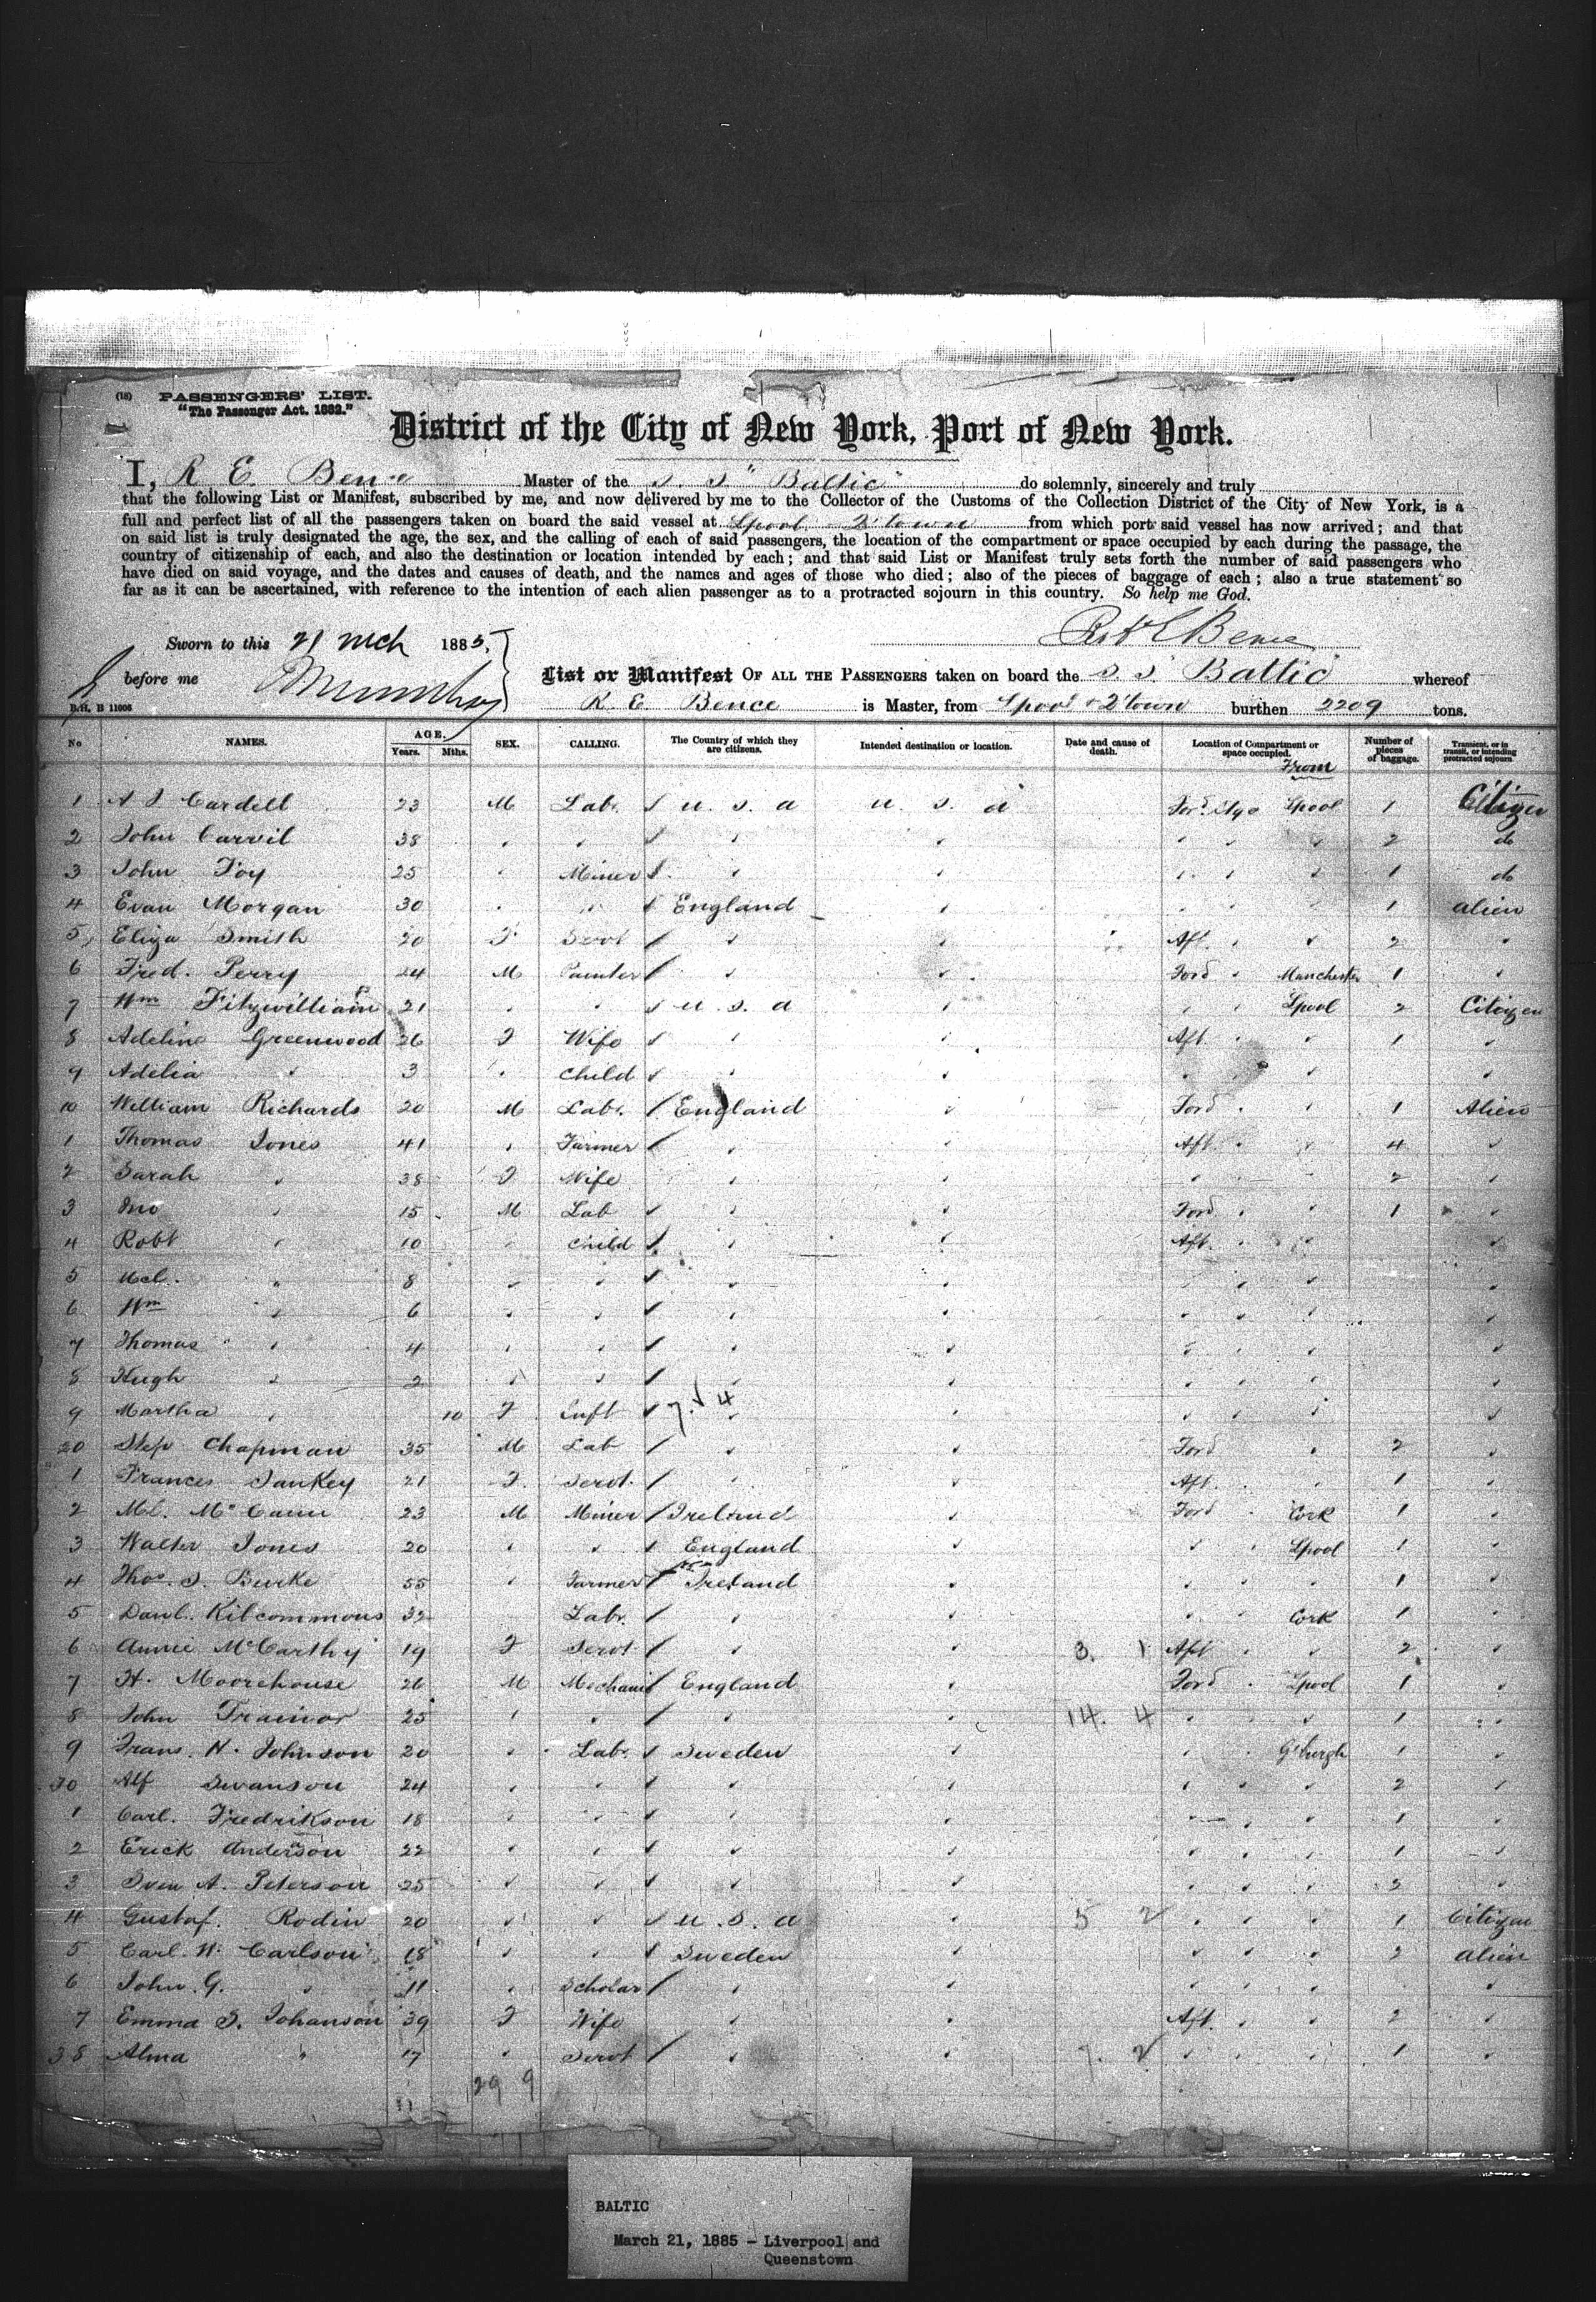 (18) PASSENGERS' LIST.
"The Passenger Act. 1882."
District of the City of New York, Port of New York.
I, R E Bence Master of the S. S "Baltic" do solemnly, sincerely and truly
that the following List or Manifest, subscribed by me, and now delivered by me to the Collector of the Customs of the Collection District of the City of New York, is a
full and perfect list of all the passengers taken on board the said vessel at Lpool Q'town from which port said vessel has now arrived; and that
on said list is truly designated the age, the sex, and the calling of each of said passengers, the location of the compartment or space occupied by each during the passage, the
country of citizenship of each, and also the destination or location intended by each; and that said List or Manifest truly sets forth the number of said passengers who
have died on said voyage, and the dates and causes of death, and the names and ages of those who died; also of the pieces of baggage of each; also a true statement so
far as it can be ascertained, with reference to the intention of each alien passenger as to a protracted sojourn in this country. So help me God.
Robt E Bence
Sworn to this 21 Mch 1885,
before me
List or Manifest OF ALL THE PASSENGERS taken on board the S. S "Baltic" whereof
B.H. B 11005 R. E. Bence is Master, from Lpool & Q'town burthen 2209 tons.
No NAMES. AGE. Years. Mths. SEX. CALLING. The Country of which they are citizens. Intended destination or location. Date and cause of death. Location of Compartment or space occupied. From Number of pieces of baggage. Transient, or in transit, or intending protracted sojourn
1 A J Cardell 23 M Labr U. S. A U. S. A Ford Stge Lpool 1 Citizen
2 John Carvil 38 2 do
3 John Foy 25 Miner 1 do
4 Evan Morgan 30 England 1 Alien
5 Eliza Smith 20 F Servt Aft. 2
6 Fred. Perry 24 M Painter Ford Manchester 1
7 Wm Fitzwilliam 21 U. S. A Lpool 2 Citizen
8 Adeline Greenwood 26 F Wife Aft. 1
9 Adelia 3 Child
10 William Richards 20 M Labr. England Ford 1 Alien
1 Thomas Jones 41 Farmer Aft 4
2 Sarah 38 F Wife 2
3 Jno 15 M Lab Ford 1
4 Robt 10 Child Aft.
5 8
6 Wm 6
7 Thomas 4
8 Hugh 2
9 Martha 10 F Inft 7. 4
20 Step Chapman 35 M Lab Ford 2
1 Frances Sankey 21 F. Servt. Aft. 1
2 Ml. McCann 23 M Miner Ireland Ford Cork 1
3 Walter Jones 20 England Lpool 1
4 Thos. J. Burke 55 Farmer Ireland 1
5 Danl. Kilcommons 32 Labr Cork 1
6 Annie McCarthy 19 F Servt 3. 1 Aft 2
7 H. Moorehouse 26 M Mechanic England Ford Lpool 1
8 John Trainor 25 14. 4 1
9 Frans. N. Johnson 20 Labr. Sweden G'burgh 1
30 Alf Swanson 24 2
1 Carl. Fredrikson 18 1
2 Erick Anderson 22 1
3 Sven A. Peterson 25 2
4 Gustaf. Rodin 20 U. S. A 5 2 1 Citizen
5 Carl. W. Carlson 18 Sweden 2 Alien
6 John. G. 11 Scholar
7 Emma S. Johanson 39 F Wife Aft. 2
38 Alma " 17 Servt 7. 2 1
29 9
BALTIC
March 21, 1885 - Liverpool and
Queenstown